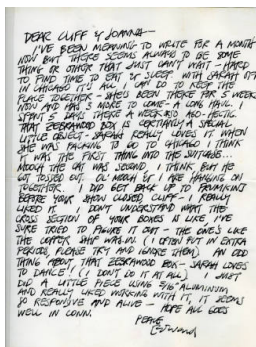 DEAR CLIFF & JOANNA—
I'VE BEEN MEANING TO WRITE FOR A MONTH
NOW BUT THERE SEEMS ALWAYS TO BE SOME
THING OR OTHER THAT JUST CAN'T WAIT - HARD
TO FIND TIME TO EAT & SLEEP WITH SARAH OFF
IN CHICAGO IT'S ALL I CAN DO TO KEEP THE
PLACE TOGETHER - SHE'S BEEN THERE FOR 5 WEEKS
NOW AND HAS 5 MORE TO COME - A LONG HAUL. I
SPENT 5 DAYS THERE A WEEK AGO - HECTIC.
THAT ZEBRAWOOD BOX IS CERTIANLY A SPECIAL
LITTLE OBJECT - SARAH REALLY LOVES IT WHEN
SHE WAS PACKING TO GO TO CHICAGO I THINK
IT WAS THE FIRST THING INTO THE SUITCASE...
MOOCH THE CAT WAS SECOND, I THINK BUT HE
GOT TOSSED OUT. OL MOOCH & I ARE HANGING ON
TOGETHER. I DID GET BACK UP TO FRUMKINS
BEFORE YOUR SHOW CLOSED CLIFF - I REALLY
LIKED IT. I DON'T UNDERSTAND WHAT THE
CROSS SECTION OF YOUR BONES IS LIKE I'VE
SURE TRIED TO FIGURE IT OUT - THE ONE'S LIKE
THE COPPER SHIP WAS IN. (I OFTEN PUT IN EXTRA
PERIODS, PLEASE TRY AND IGNORE THEM) AN ODD
THING ABOUT THAT ZEBRAWOOD BOX - SARAH LOVES
TO DANCE! (I DON'T DO IT AT ALL) I JUST
DID A LITTLE PIECE USING 5/16" ALUMINUM
AND REALLY LIKED WORKING WITH IT, IT SEEMS
SO RESPONSIVE AND ALIVE - HOPE ALL GOES
WELL IN CONN.
PEACE